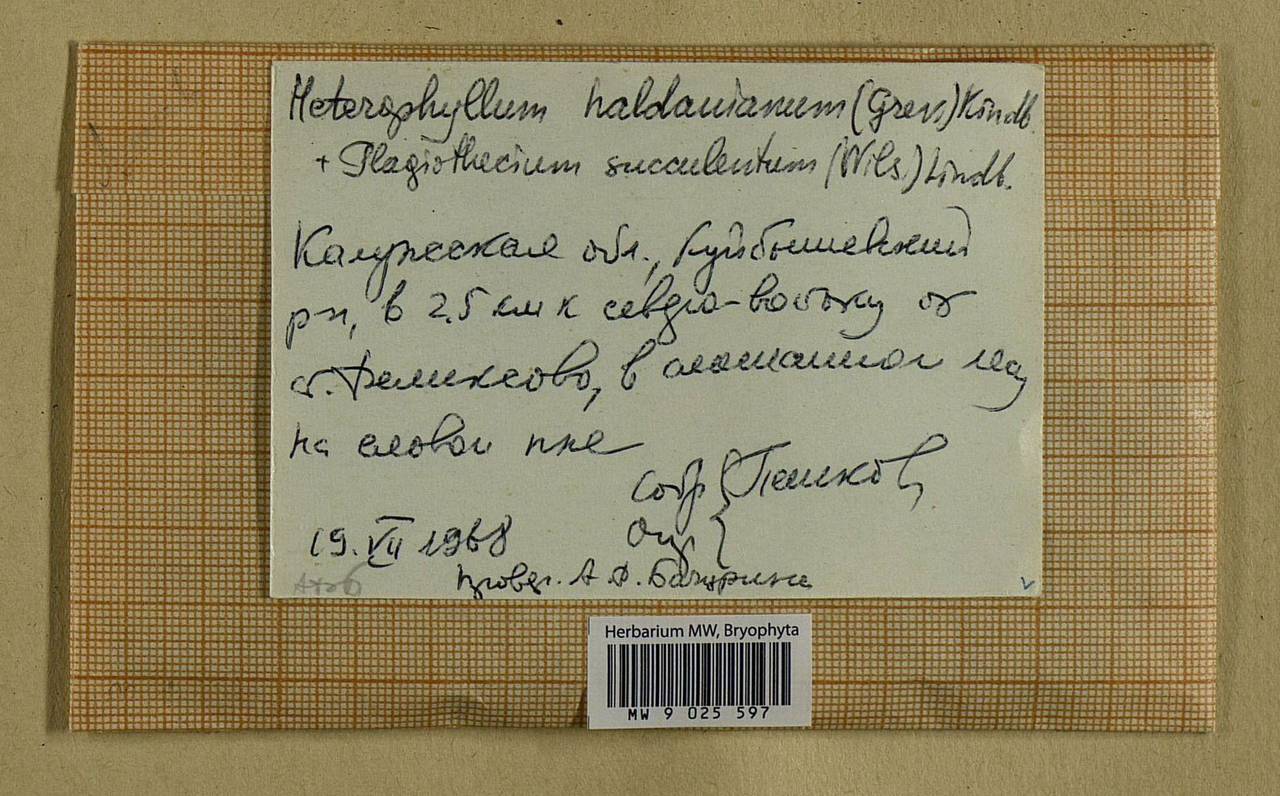 Heterophyllum haldanianum (Grev.) Kindb.
+ Plagiothecium succulentum (Wils.) Lindb.
Калужская обл., Куйбышевский
р-н, в 2,5 км к северо-востоку от
ст. Феликсово, в смешанном лесу
на еловом пне
Собр. Пешков
Опр.
19.VII 1968
провер. А.Ф. Бачурина
Herbarium MW, Bryophyta
MW 9 025 597